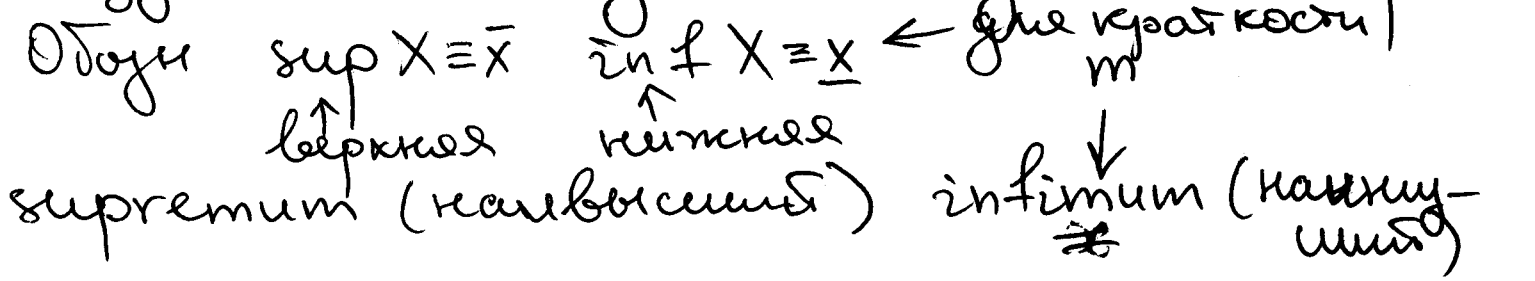 Обозн sup X ≡ x̄ inf X ≡ x̲ ← для краткости
m
↑ верхняя ↑ нижняя ↓
supremum (наивысший) infimum (наинизший)